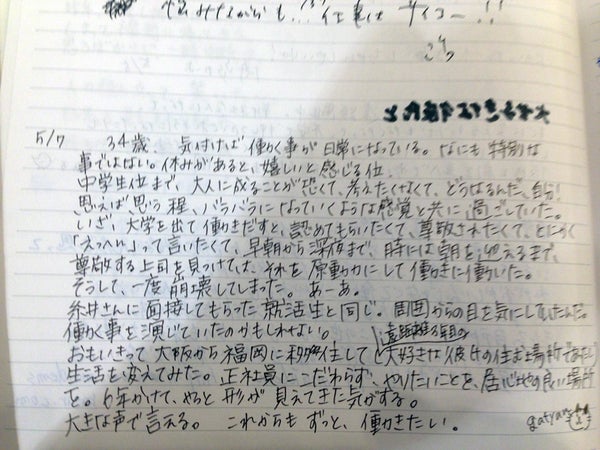 悩みながらも…!? 仕事は サイコー!!
5/7 34歳 気付けば働く事が日常になっている。なにも特別な
事ではない。休みがあると、嬉しいと感じる位。
中学生位まで、大人に成ることが恐くて、考えたくなくて、どうなるんだ、自分!
思えば思う程、バラバラになっていくような感覚と共に過ごしていた。
いざ、大学を出て働きだすと、認めてもらいたくて、尊敬されたくて、とにかく
「えっへん」って言いたくて、早朝から深夜まで、時には朝を迎えるまで、
尊敬する上司を見つけては、それを原動力にして働きに働いた。
そうして、一度崩壊してしまった。あーあ。
糸井さんに面接してもらった就活生と同じ。周囲からの目を気にしていたんだ。
働く事を演じていたのかもしれない。
おもいきって大阪から福岡に移住して(大好きな彼氏の住む場所であり)
生活も変えてみた。正社員にこだわらず、やりたいことを、居心地の良い場所
を。6年かけて、やっと形が見えてきた気がする。
大きな声で言える。これからもずっと、働きたい。
gatyan